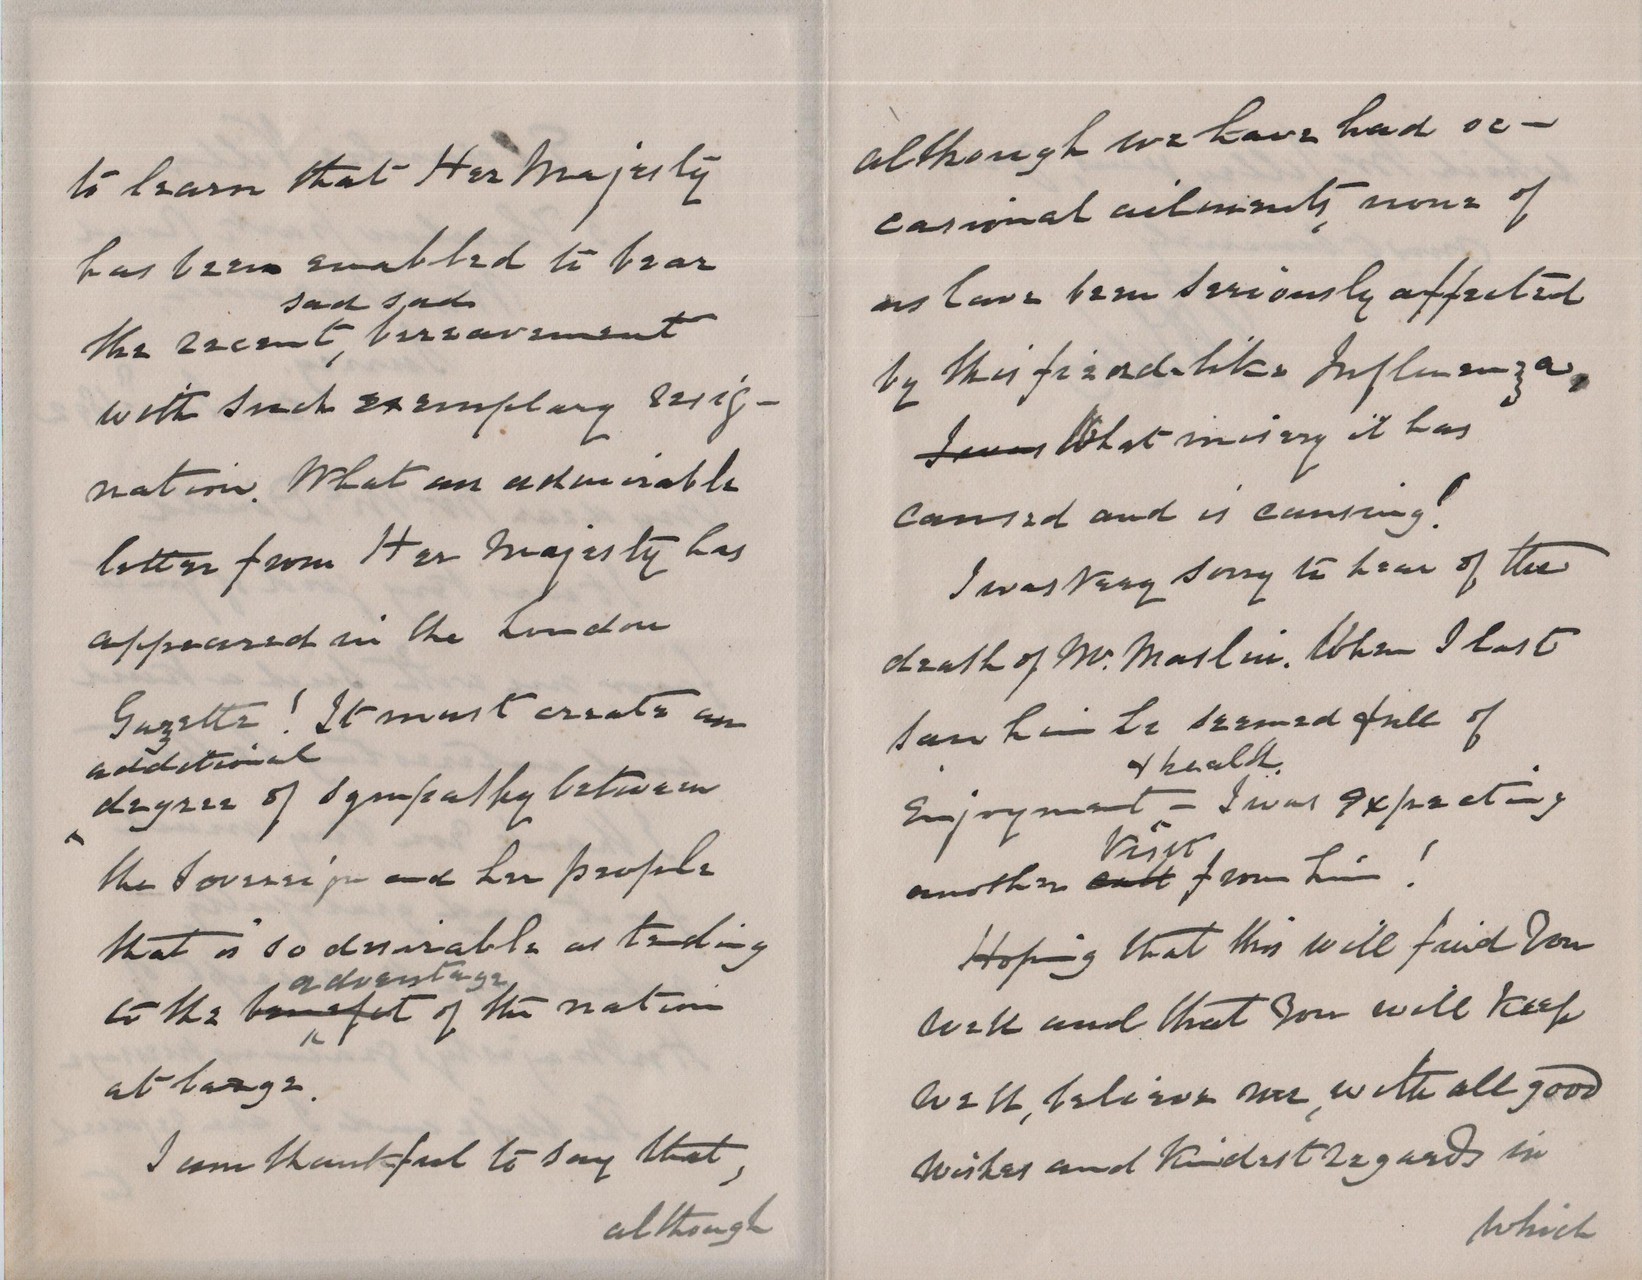 to learn that Her Majesty
has been enabled to bear
sad sad
the recent, bereavement
with such exemplary resig-
nation. What an admirable
letter from Her Majesty has
appeared in the London
Gazette! It must create an
additional
degree of sympathy between
the Sovereign and her people
that is so desirable as tending
advantage
to the benefit of the nation
at large.
I am thankful to say that,
although
although we have had oc-
casional ailments, none of
us have been seriously affected
by this fiend-like Influenza,
I was What misery it has
caused and is causing!
I was very sorry to hear of the
death of Mr. Maslin. When I last
saw him he seemed full of
& health.
enjoyment - I was expecting
Visit
another call from him!
Hoping that this will find You
well and that You will keep
well, believe me, with all good
wishes and kindest regards in
which